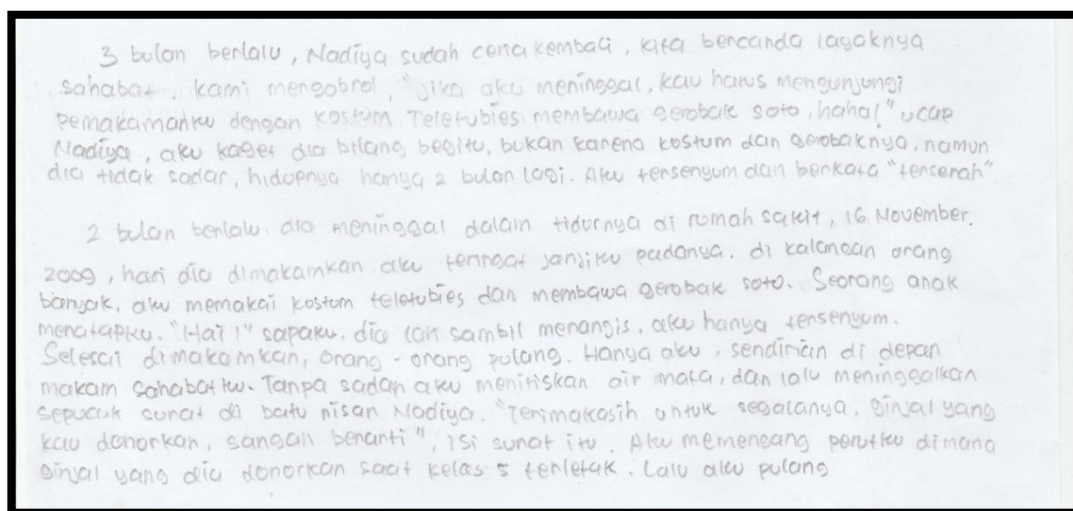 3 bulan berlalu, Nadiya sudah ceria kembali, kita bercanda layaknya
sahabat. kami mengobrol, "Jika aku meninggal, kau harus mengunjungi
pemakamanku dengan kostum Teletubies membawa gerobak soto, haha!" ucap
Nadiya, aku kaget dia bilang begitu, bukan karena kostum dan gerobaknya, namun
dia tidak sadar, hidupnya hanya 2 bulan lagi. Aku tersenyum dan berkata "terserah"
2 bulan berlalu. dia meninggal dalam tidurnya di rumah sakit, 16 November.
2009, hari dia dimakamkan. aku teringat janjiku padanya. di kalangan orang
banyak, aku memakai kostum teletubies dan membawa gerobak soto. Seorang anak
menatapku. "Hai!" sapaku. dia lari sambil menangis, aku hanya tersenyum.
Selesai dimakamkan, orang-orang pulang. Hanya aku, sendirian di depan
makam sahabatku. Tanpa sadar aku menitiskan air mata, dan lalu meninggalkan
sepucuk surat di batu nisan Nadiya. "Terimakasih untuk segalanya. Ginjal yang
kau donorkan, sangan berarti", isi surat itu. Aku memengang perutku dimana
ginjal yang dia donorkan saat kelas 5 terletak. Lalu aku pulang